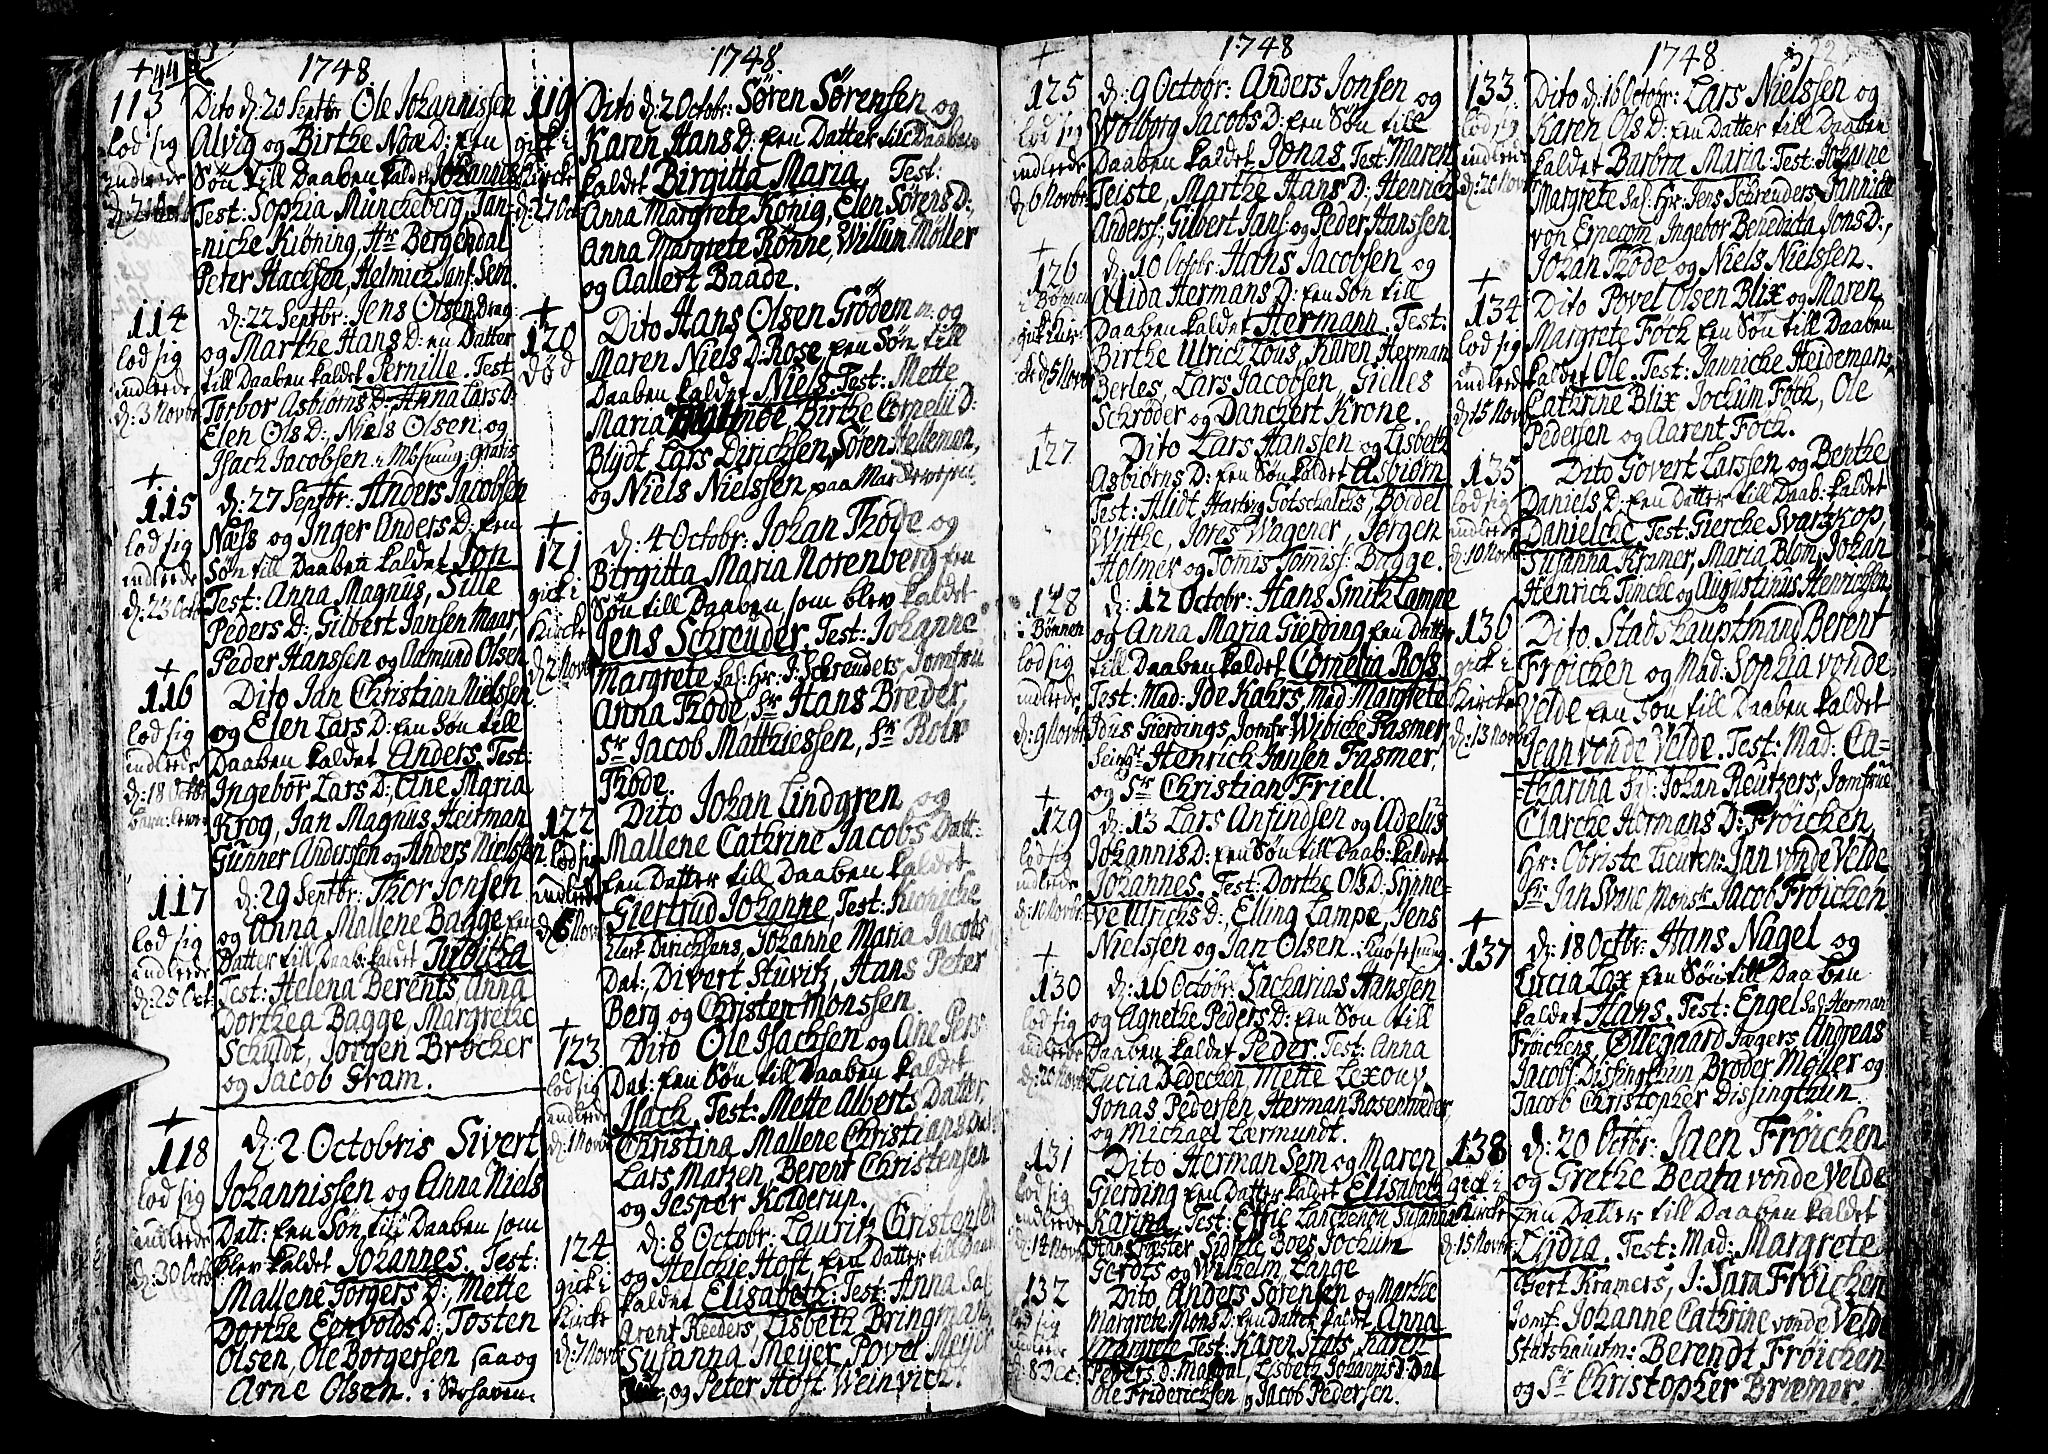 1748
113
lod sig
indlede
Dito d: 20 Septbr Ole Johannissen
Alvig og Birthe Noa D: een
Søn till Daaben kaldet Johannes
Test: Sophia Müncheberg, Jan-
-nicke Kiøning, Hr Bergendal
Peter Hachsen, Helmich Jans: Sem.
114
lod sig
indlede
d: 3 Novbr
d: 22 Septbr: Jens Olsen Drag
og Marthe Hans D: en Datter
till Daaben kaldet Pernille. Test
Torbor Asbiørns D: Anna Lars D:
Elen Ols D:, Niels Olsen og
Isach Jacobsen. gratis
115
lod sig
indlede
d: 23 Octb
d: 27 Septbr: Anders Jacobsen
Næss og Inger Anders D: een
Søn till Daaben kaldet Jon
Test: Anna Magnus, Sille
Peders D:, Gilbert Jansen Maar,
Peder Hanssen og Aamund Olsen
116
lod sig
indlede
d: 18 Octbr
Dito Jan Christian Nielssen
og Elen Lars D: een Søn till
Daaben kaldet Anders. Test:
Ingebor Lars D:, Ane Maria
Krog, Jan Magnus Heitman
Gunner Anderssen og Anders Nielssen
117
lod sig
indlede
d: 25 Oct
d: 29 Septbr: Thor Jonsen
og Anna Mallene Bagge een
Datter till Daab: kaldet
Test: Helena Berents, Anna
Dorthea Bagge, Margretie
Schuldt, Jørgen Brøcker
og Jacob Fram.
118
lod sig
indlede
d: 30 Octb
d: 2 Octobris Sivert
Johannissen og Anna Niels
Datt: een Søn till Daaben som
blev kaldet Johannes. Test:
Mallene Torgers D:, Mette
Dorthe Eenvolds D: Tosten
Olsen, Ole Borgersen saa og
Arne Olsen. i Strhaven.
1748
119
gick i
Kircke
d: 27 Oct
Dito d: 2 Octobr: Søren Sørensen og
Karen Hans D: een Datter till Daaben
kaldet Birgitta Maria, Test:
Anna Margrete König, Elen Sørens D:,
Anna Margrete Rønne, Willum Møller
og Aallert Baade.
120
død
Dito Hans Olsen Grødem og
Maren Niels D: Rose, een Søn till
Daaben kaldet Niels. Test: Mette
Maria Birthe Cornelii D:
Blydt Lars Dirichsen, Søren Helleman,
og Niels Nielssen
121
gick i
Kircke
d: 2 Novbr
d: 4 Octobr: Johan Thode og
Birgitta Maria Norenberg een
Søn till Daaben, som blev kaldet
Jens Schreuder. Test: Johanne
Margrete Sal: Hr: J: Schreuders, Jomfru
Anna Thode, Sr Hans Breder,
Sr Jacob Matthiessen, Sr Rolv
Thode.
122
lod sig
indlede
d: 6 Nov
Dito Johan Lindgren og
Mallene Cathrine Jacobs Datt:
een Datter till Daaben kaldet
Giertrud Johanne, Test:
Dirichsens, Johanne Maria Jacobs
Dat:, Divert Stuvitz, Hans Peter
Berg og Christen Monssen.
123
lod sig
indlede
d: 1 Novbr
Dito Ole Isachsen og Ane Pers
Dat: een Søn till Daaben kaldet
Isach. Test: Mette Alberts Datter,
Christina Mallene Christians Dat
Lars, Matzen, Berent Christensen
og Jesper Kolderup.
124
gick i
Kircke
d: 7 Novb
d: 8 Octobr: Lauritz Christensen
og Helchie Hoft een Datter till Daab
kaldet Elisabeth: Test: Anna Sal:
Arent Reeders Lisbeth Bringman
Susanna Meyer Povel Meyer
og Peter Hoft Weinvich.
1748
125
lod sig
indlede
d: 6 Novbr
d: 9 Octobr: Anders Jonsen og
Wolborg Jacobs D: een Søn till
Daaben kaldet Jonas, Test: Maren
Teiste, Marthe Hans D:, Henrich
Anderss:, Gilbert Jans: og Peder Hanssen.
126
i Bønnen
gick i Kir-
cke d: 5 Novb
d: 10 Octobr: Hans Jacobsen og
Alida Hermans D: een Søn till
Daaben kaldet Hermann. Test:
Birthe Ulrich Lous, Karen Herman
Berles, Lars Jacobsen, Gielles
Schrøder og Danchert Krone.
127
Dito Lars Hanssen og Lisbeth
Asbiørns D: een Søn kaldet Asbiørn
Test: Alidt Hartvig Gotschalchs, Bordel
Witthe, Jores Wagener, Jørgen
Holmer og Tomis Tomiss: Bagge.
128
i Bønnen
lod sig
indlede
d: 9 Novbr
d: 12 Octobr: Hans Smith Lampe
og Anna Maria Gierding een Datter
till Daaben kaldet Cornelia Ross
Test: Mad: Ide Kahrs, Mad: Margrete
Idus Gierdings, Jomfr: Wibicke Fasmer
Seigr: Henrich Jansen Fasmer,
og Sr Christian Friell
129
lod sig
indlede
d: 10 Novbr
d: 13 Lars Anfindsen og Adelus
Johannis D: een Søn till Daab: kaldet
Johannes. Test: Dorthe Ols D: Synne-
ve Ulrichs D:, Elling Lampe, Jens
Nielssen og Jan Olsen.
130
lod sig
indlede
d: 20 Novbr
d: 16 Octobr: Zacharias Hanssen
og Agnethe Peders D: een Søn till
Daaben kaldet Peder. Test: Anna
Lucia Dedechen, Mette Lexouv,
Jonas Pedersen Herman Rosenmeder,
og Michael Lærmundt.
131
lod sig
indlede
d: 14 Novbr
Dito Herman Sem og Maren
Gierding een Datter kaldet Elisabeth
Karina. Test: Susanna
Hans Sidselle Boes Jochum
Gerdts og Wilhelm Lange
132
lod sig
indlede
d: 8 Dec:
Dito Anders Sørensen og Marthe
Margrete Mons D: een Datter kaldet Anna
Margrete Test: Karen Stats, Karen
Peders D: Mandal, Lisbeth Johannis D: Dal
Ole Friderichsen, og Jacob Pedersen.
1748
133
lod sig
indlede
d: 20 Novbr
Dito d: 16 Octobr: Lars Nielssen og
Karen Ols D: een Datter till Daaben
kaldet Barbra Maria: Test: Johanne
Margrete Sal: Hr: Jens Schreuders, Jannicke
von Erpecom, Ingebor Benedicta Jons D:,
Johan Thode og Niels Nielssen.
134
lod sig
indlede
d: 15 Novbr
Dito Povel Olsen Blix og Maren
Margrete Foch een Søn till Daaben
kaldet Ole. Test: Jannicke Heideman,
Cathrine Blix Jochum Foch, Ole
Pedersen og Aarent Foch.
135
lod sig
indlede
d: 10 Novbr
Dito Govert Larssen og Benthe
Daniels D: een Datter till Daab: kaldet
Danielche. Test: Gierche Svartzkop,
Susanna Kramer, Maria Blom, Johan
Henrich Tincke og Augustinus Henrichsen
136
gick i
Kircke
d: 13 Novbr
Dito Stadshauptmand Berent
Frøichen og Mad: Sophia vonde
Velde een Søn till Daaben kaldet
Jean vonde Velde. Test: Mad: Ca-
-tharina Sl: Johan Reutzers, Jomfrue
Clarche Hermans D: Frøichen,
Hr: Obriste Lieuten: Jan vonde Velde
Sr Jan Svane Monsr Jacob Frøichen.
137
d: 18 Octbr: Hans Nagel og
Lucia Lax een Søn till Daaben
kaldet Hans. Test: Engel Sal: Herman
Frøichens, Øllegaard Jægers Andreas
Jacob Dissingthun, Broder Møller og
Jacob Christopher Dissingthun.
138
gick i
Kircke
d: 15 Novbr
d: 20 Octbr: Jaen Frøichen
og Grethe Beata vonde Velde
een Datter till Daaben kaldet
Lydia. Test: Mad: Margrete
Gert Kramers, J: Sara Frøichen
Jomf: Johanne Cathrine vonde Velde
Statshauptm: Berendt Frøichen
og Sr Christopher Bræmer.